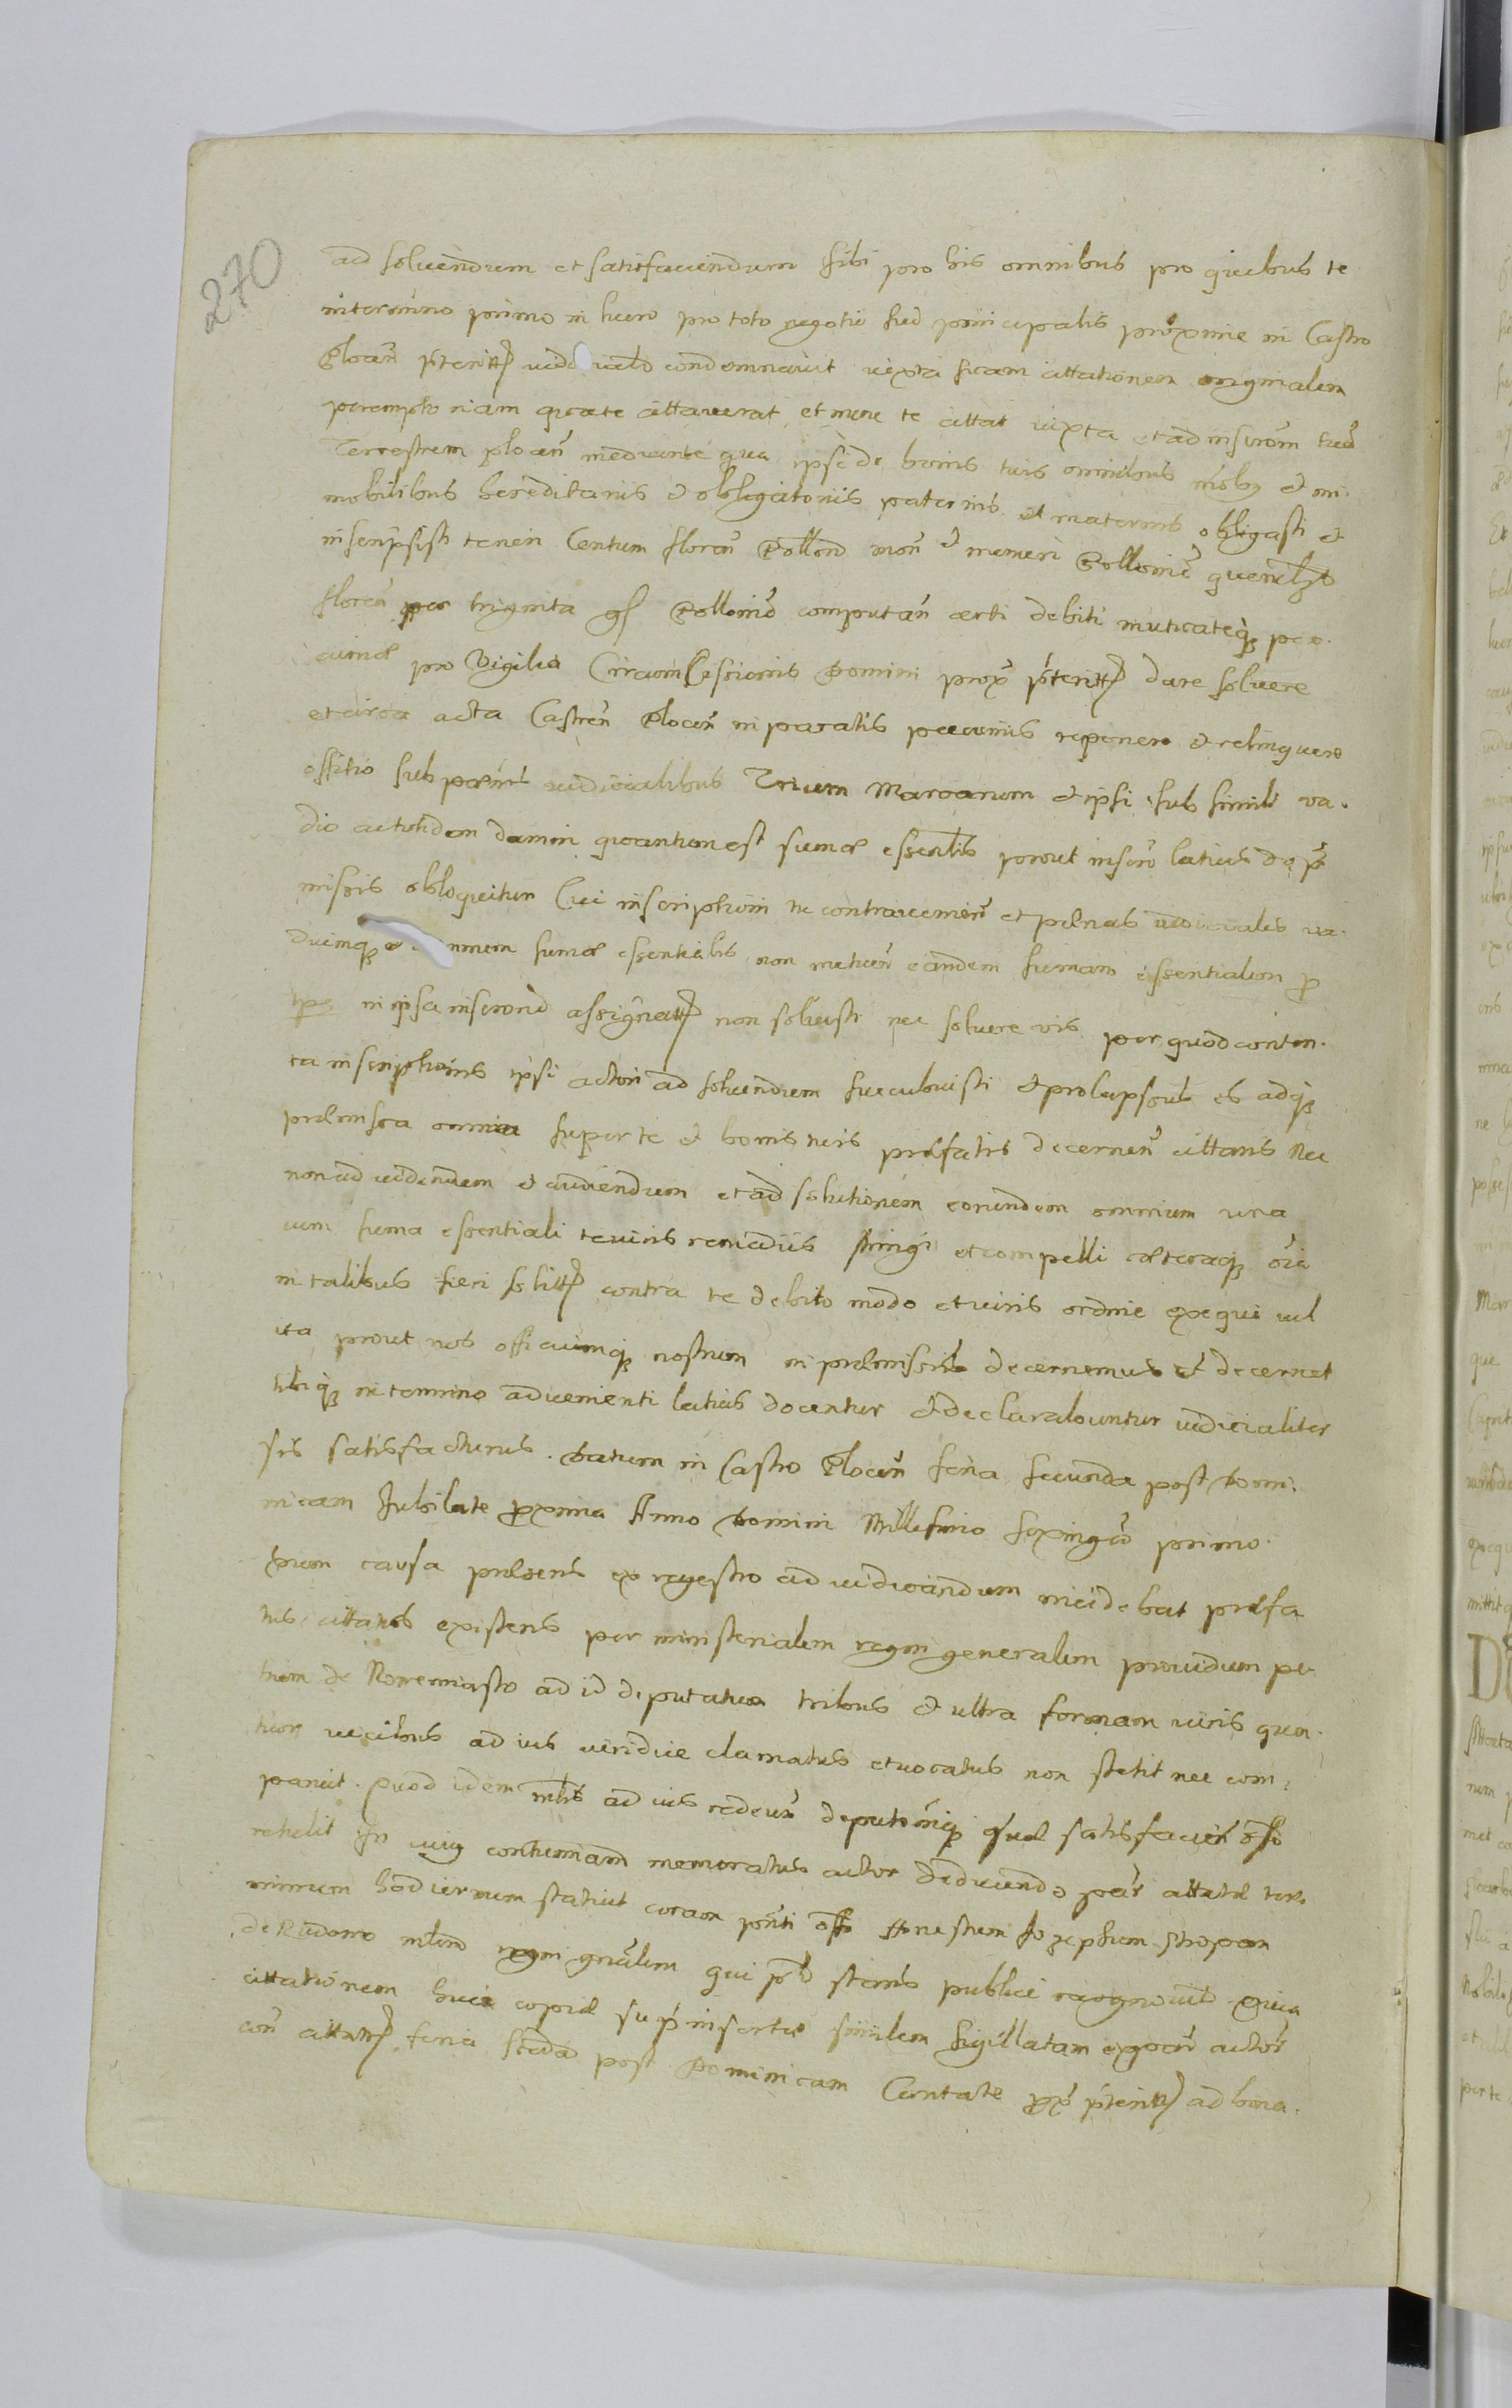 270
ad soluendum et satisfaciendum sibi pro his omnibus pro quibus te
in termino primo in lucro pro toto negotio sed principalis proxime in Castro
Plocen̄ pteritt iudi condemnauit iuxta suam cittationem originalem
peremptoriam qua te cittauerat, et nunc te cittat iuxta et ad inscron̄m tuā
Terrestrem plocen̄ mediante qua ipse de bonis tuis omnibus mob et im
mobilibus hereditariis et obligatoriis paternis et maternis obligasti et
inscripsisti teneri Centum floren̄ Pollond mon̄ et numeri Pollonic̄
floren̄ per triginta gs Pollonic̄ computan̄ certi debiti mutuateq pec
cuniæ pro Vigilia Circumcisionis Domini prox pteritt dare soluere
et circa acta Castren̄ Plocen̄ in paratis pecuniis reponere et relinquere
officio sub pœnis iudicialibus Trium Marcarum et ipsi sub simili va
dio ac totidem damni quantum est sumæ essentlis prout inscro latius de p̄
missis obloquitur Cui inscriptioni tu contraueniēn et pœnas iudiciales va
diumq et sumæ essentialis non metuen̄ eandem sumam essentialem p
tpe in ipsa inscrone assignatt non soluisti nec soluere vis per quod conten
ta inscriptionis ipsi actori ad soluendum succubuisti et prolapsus es adq
præmissa omnia super te et bonis tuis præfatis decernen̄ cittaris Nec
non ad uidendum et audiendum et ad solutionem eorundem omnium una
cum suma essentiali te uiris remediis stringi et compelli cæteraq oīa
in talibus fieri solitt contra te debito modo et iuris ordine exequi uel
ita prout nos officiumq nostrum in præmissis decernemus et decernet
tibiq in termino aduenienti latius docentur et declarabuntur iudicialiter
sis satisfacturus. Datum in Castro Plocen̄ feria secunda post Domi
nicam Jubilate pxima Anno Domini Millesimo sexingō primo.
Dum causa præsens ex regestro ad iudicandum incidebat præfa
tus cittatus existens per ministerialem regni generalem prouidum pe
trum de Nouemiasto ad id deputatum tribus et ultra formam iuris quar
tum uicibus ad ius uiridice clamatus et uocatus non stetit nec com
paruit. Quod idem mlis ad ius redeun̄ deputonīq suæ satisfacien̄ offo
retulit In cuius contumām memoratus actor deducendo par̄ cittatæ ter
minum hodiernum statuit coram pnti offo Honestum Jozephum
de mlem regni gnālem qui p̄d stans publice recognouit Quia
cittationem huic copiæ sup̄ insertæ similem sigillatam ex parte actor̄
con̄ cittatt feria Scda post Dominicam Cantate px pteritt ad bona